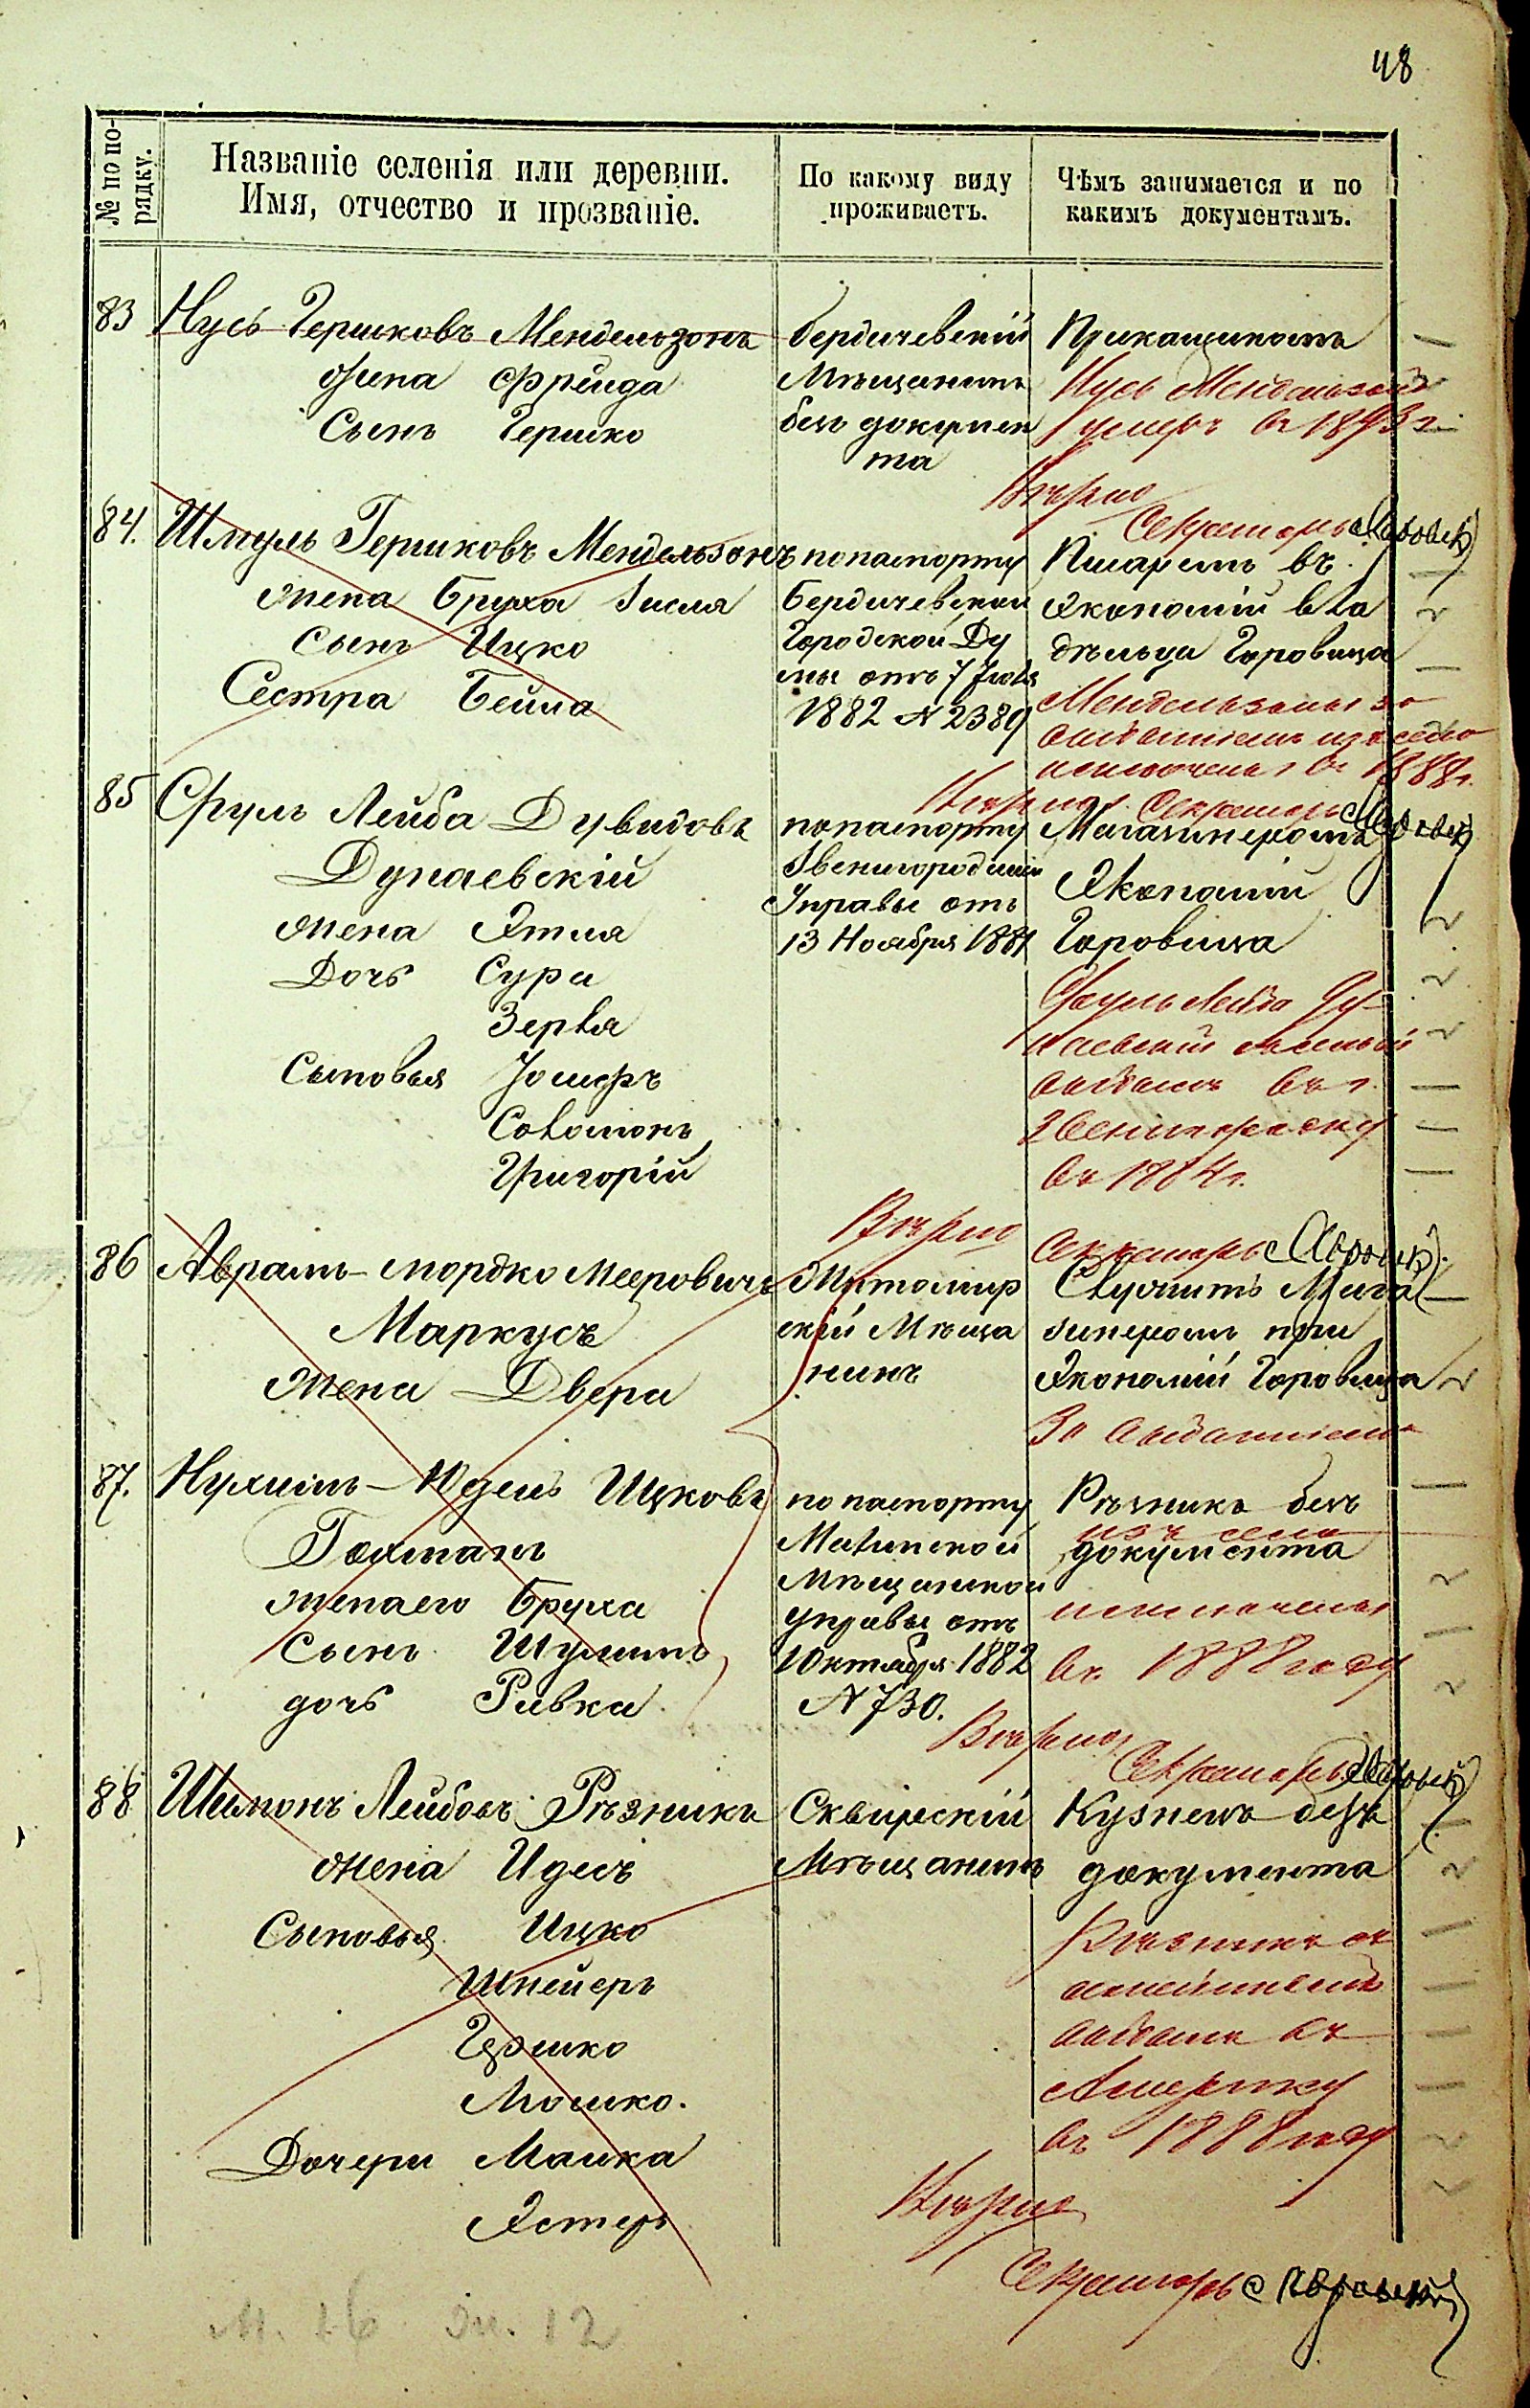 48
№ по по-
рядку.
Названіе селенія или деревни.
Имя, отчество и прозваніе.
По какому виду
проживаетъ.
Чѣмъ занимается и по
какимъ документамъ.
83
Нусь Гершковъ Мендельзонъ
жена Фрейда
Сынъ Гершко
бердичевскій
Мѣщанинъ
безъ докумен
та
Прикащикомъ
Нусь Мендельзонъ
умеръ въ 1893 г.
Вѣрно
Секретарь
84.
Шмуль Гершковъ Мендельзонъ
жена Бруха Зисля
сынъ Ицко
Сестра Бейла
по паспорту
Бердичевской
Городской Ду
мы отъ 7 Іюля
1882 № 2389
Писаремъ въ
Экономіи вла
дѣльца Горовица
Мендельзоны за
выбытіемъ изъ села
исключены въ 1888г.
Вѣрно: Секретарь
85
Сруль Лейба Дувидовъ
Дунаевскій
жена Этля
Дочь Сура
Зерля
Сыновья Іосифъ
Соломонъ
Григорій
по паспорту
Звенигородской
Управы отъ
13 Ноября 1881
Магазинеромъ
Экономіи
Горовица
Сруль Лейба Ду-
наевскій съ семьей
выбылъ въ г.
Звенигородку
въ 1884 г.
Вѣрно
Секретарь
86
Аврамъ-Мордко Мееровичъ
Маркусъ
жена Двера
Житомир
скій Мѣща
нинъ
Служитъ Мага
зинеромъ при
Экономіи Горовица
За выбытіемъ
87.
Нухимъ-Юдель Ицковъ
Гохманъ
жена его Бруха
сынъ Шулимъ
дочь Ривка
по паспорту
Малинской
Мѣщанской
управы отъ
1 Октября 1882
№ 730.
Рѣзникъ безъ
изъ села
документа
исключены
въ 1888 году
Вѣрно:
Секретарь
88
Шимонъ Лейбовъ Рѣзникъ
жена Идесъ
Сыновья Ицко
Шнееръ
Гершко
Мошко.
Дочери Малка
Эстеръ
Сквирскій
Мѣщанинъ
Кузнецъ безъ
документа
Рѣзникъ съ
семействомъ
выбылъ въ
Америку
въ 1888 году
Вѣрно
Секретарь